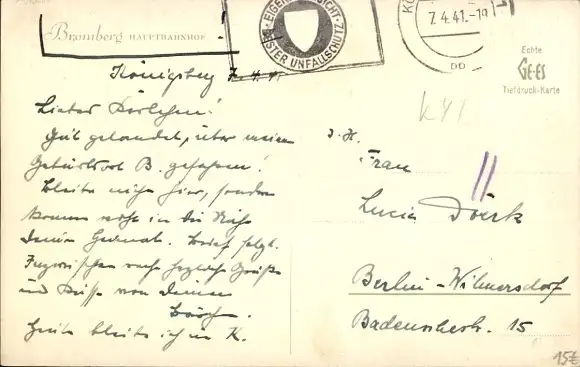 Bromberg HAUPTBAHNHOF
EIGENE VORSICHT
BESTER UNFALLSCHUTZ
7.4.41.-19
Echte
GE-ES
Tiefdruck-Karte
K41
Königsberg 7.4.41
Lieber
Gut gelandet, über meinen
Geburtsort B. gefahren!
Bleibe nicht hier, sondern
komme in die Nähe
deiner Heimat. Brief folgt.
Inzwischen noch herzliche Grüße
und Küsse von Deinem
Heute bleibe ich in K.
z. Zt.
Frau
Lucia Dörk
Berlin-Wilmersdorf
Badenschestr. 15
15€